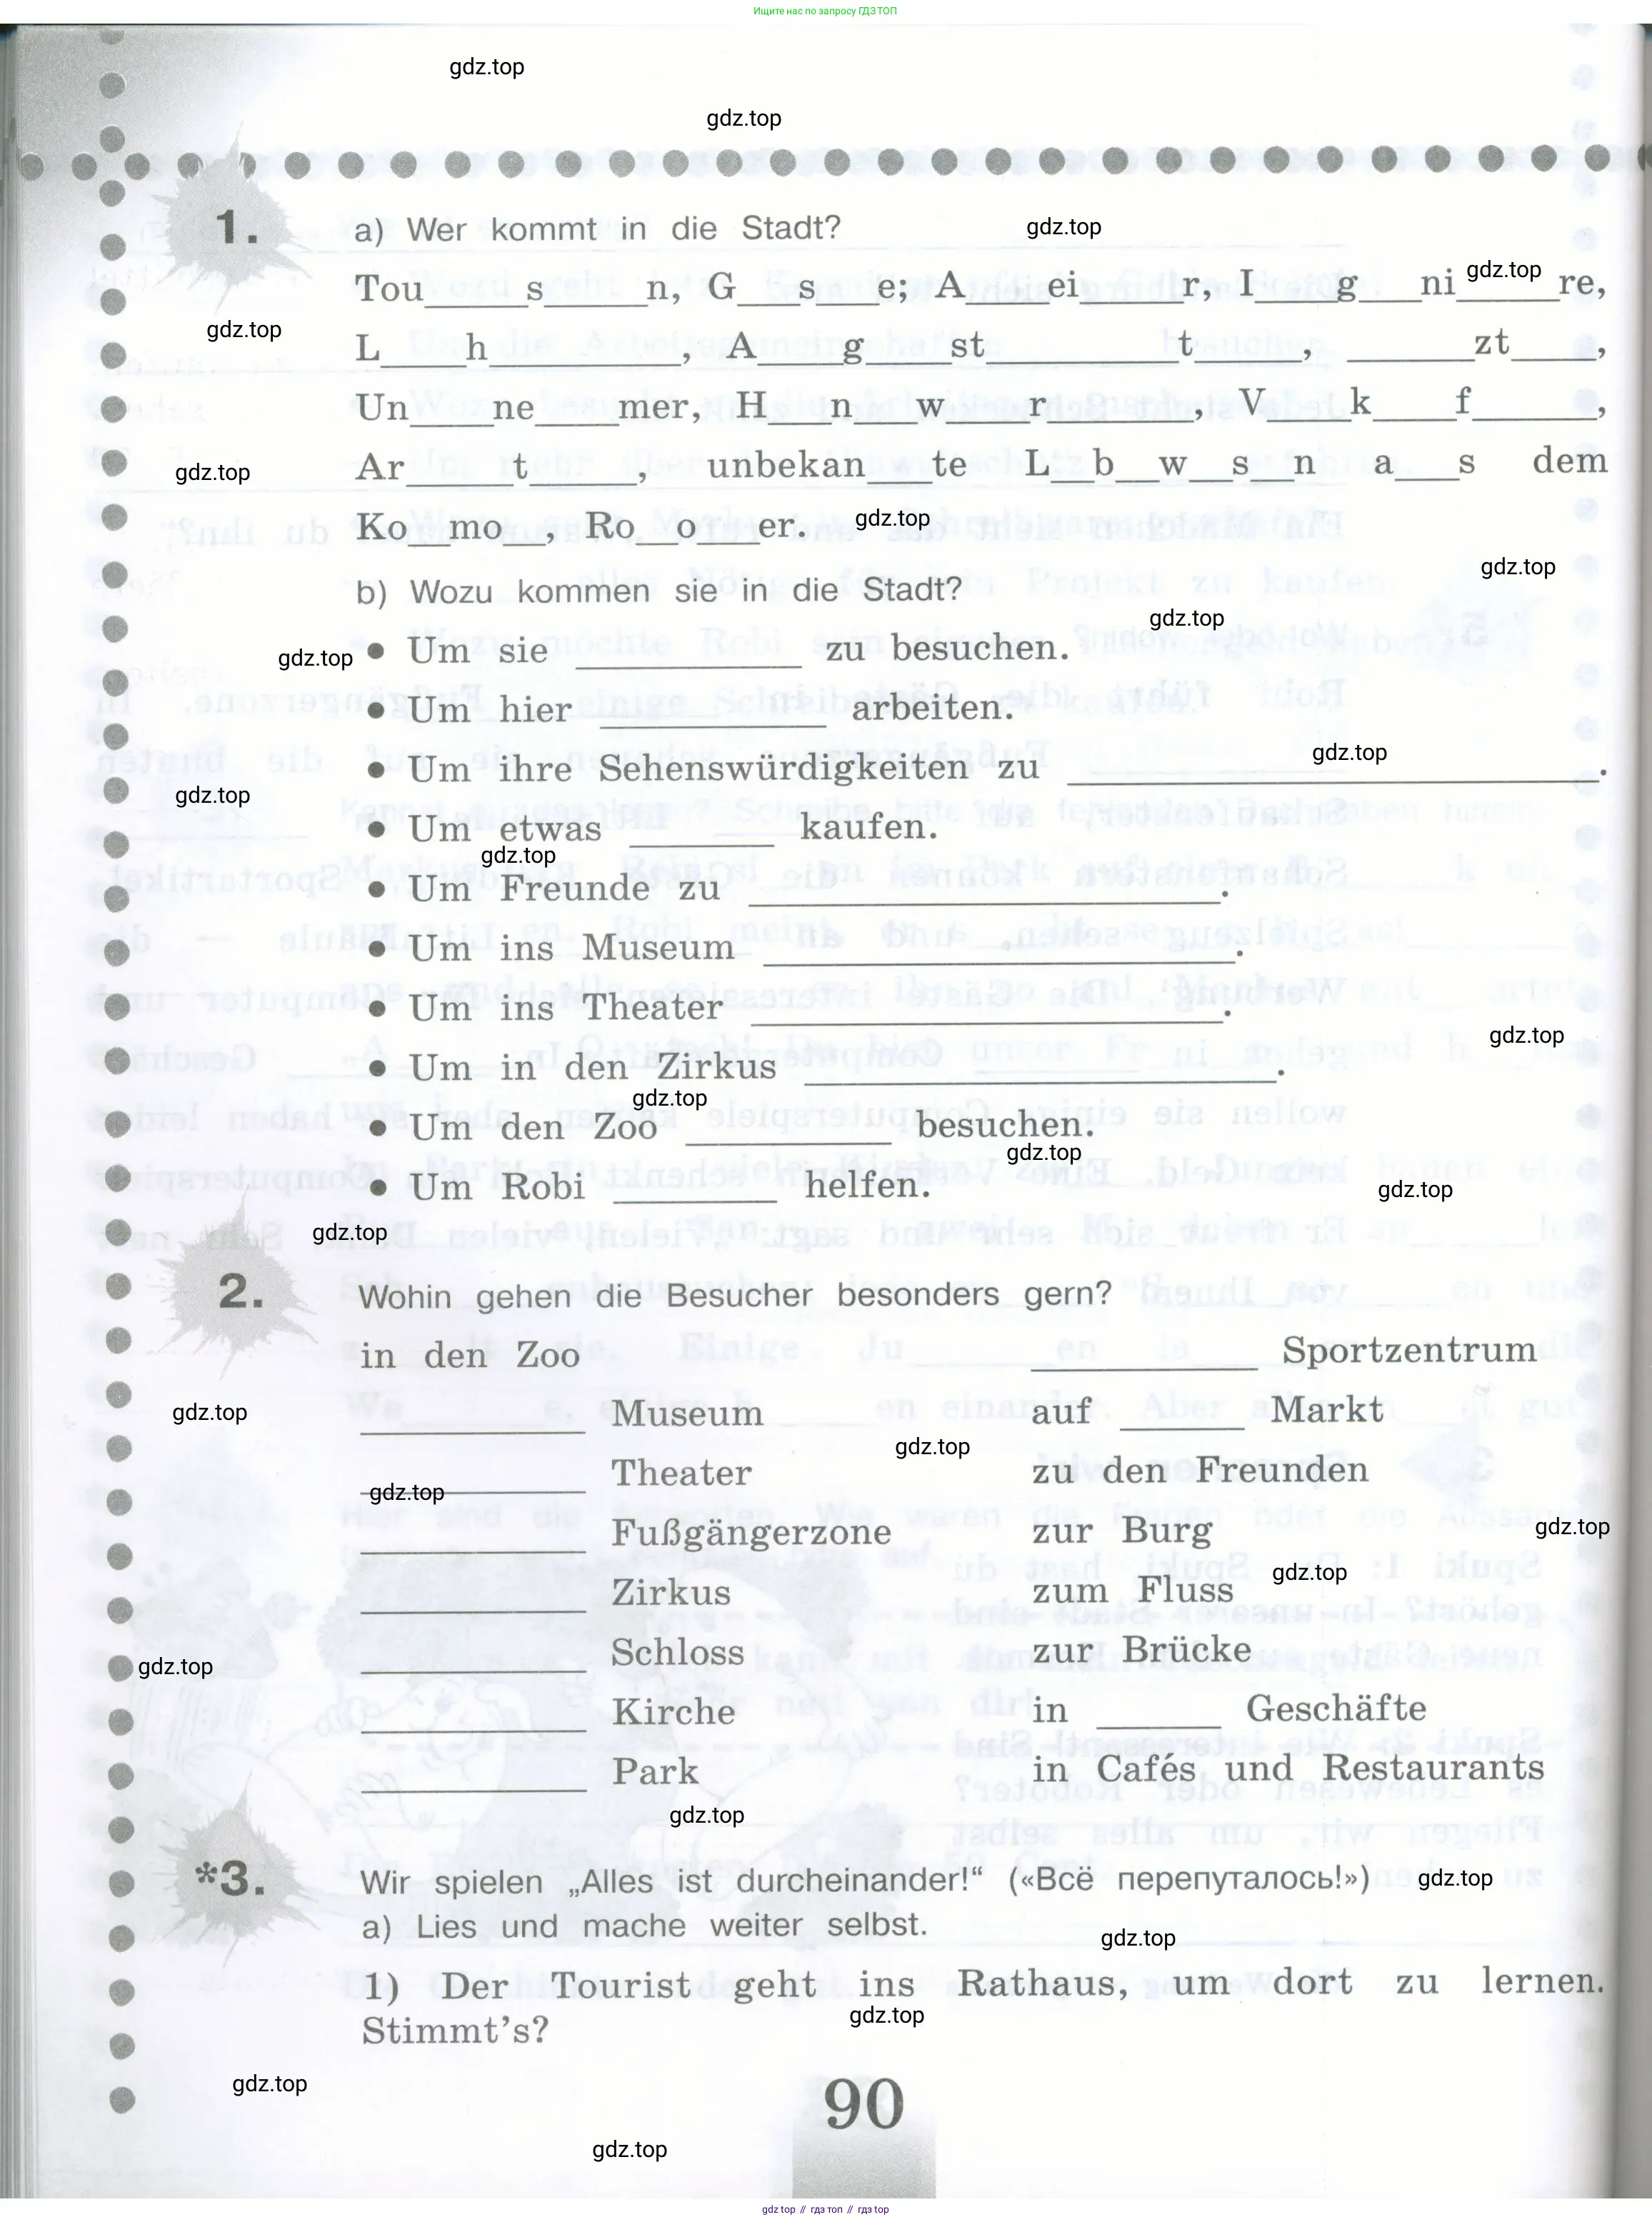 Ищите нас по запросу ГДЗ ТОП
gdz.top
gdz.top
1. a) Wer kommt in die Stadt? gdz.top
Tou____s____n, G___s___e, A____ei____r, I____g___ni____re, gdz.top
gdz.top
L____h________, A____g____st________t____, ______zt____,
Un____ne____mer, H___n___w____r______, V____k____f______,
gdz.top
Ar_____t_____, unbekan___te L__b__w__s__n a___s dem
Ko__mo__, Ro__o___er. gdz.top
gdz.top
b) Wozu kommen sie in die Stadt?
gdz.top
gdz.top • Um sie __________ zu besuchen.
• Um hier __________ arbeiten.
• Um ihre Sehenswürdigkeiten zu __________. gdz.top
gdz.top
• Um etwas _______ kaufen.
gdz.top
• Um Freunde zu __________.
• Um ins Museum __________.
• Um ins Theater __________.
gdz.top
• Um in den Zirkus __________.
gdz.top
• Um den Zoo _________ besuchen.
gdz.top
• Um Robi _______ helfen.
gdz.top
gdz.top
2. Wohin gehen die Besucher besonders gern?
in den Zoo
__________ Museum
__________ Theater
__________ Fußgängerzone
__________ Zirkus
__________ Schloss
__________ Kirche
__________ Park
__________ Sportzentrum
auf ______ Markt
zu den Freunden
zur Burg
zum Fluss
zur Brücke
in ______ Geschäfte
in Cafés und Restaurants
gdz.top
gdz.top
gdz.top
gdz.top
gdz.top
gdz.top
gdz.top
*3. Wir spielen „Alles ist durcheinander!“ («Всё перепуталось!») gdz.top
a) Lies und mache weiter selbst.
gdz.top
1) Der Tourist geht ins Rathaus, um dort zu lernen.
gdz.top
Stimmt’s?
gdz.top
90
gdz.top
gdz top // гдз топ // gdz top